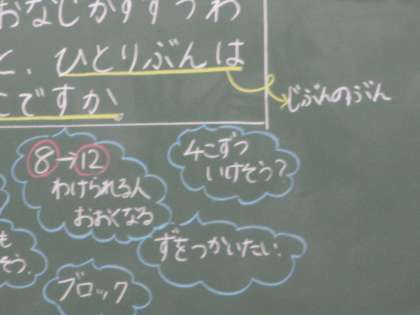 おなじかずずつわ
と、ひとりぶんは
こですか
じぶんのぶん
8→12
わけられる人
おおくなる
4こずつ
いけそう?
も
そう。
ずをつかいたい
ブロック